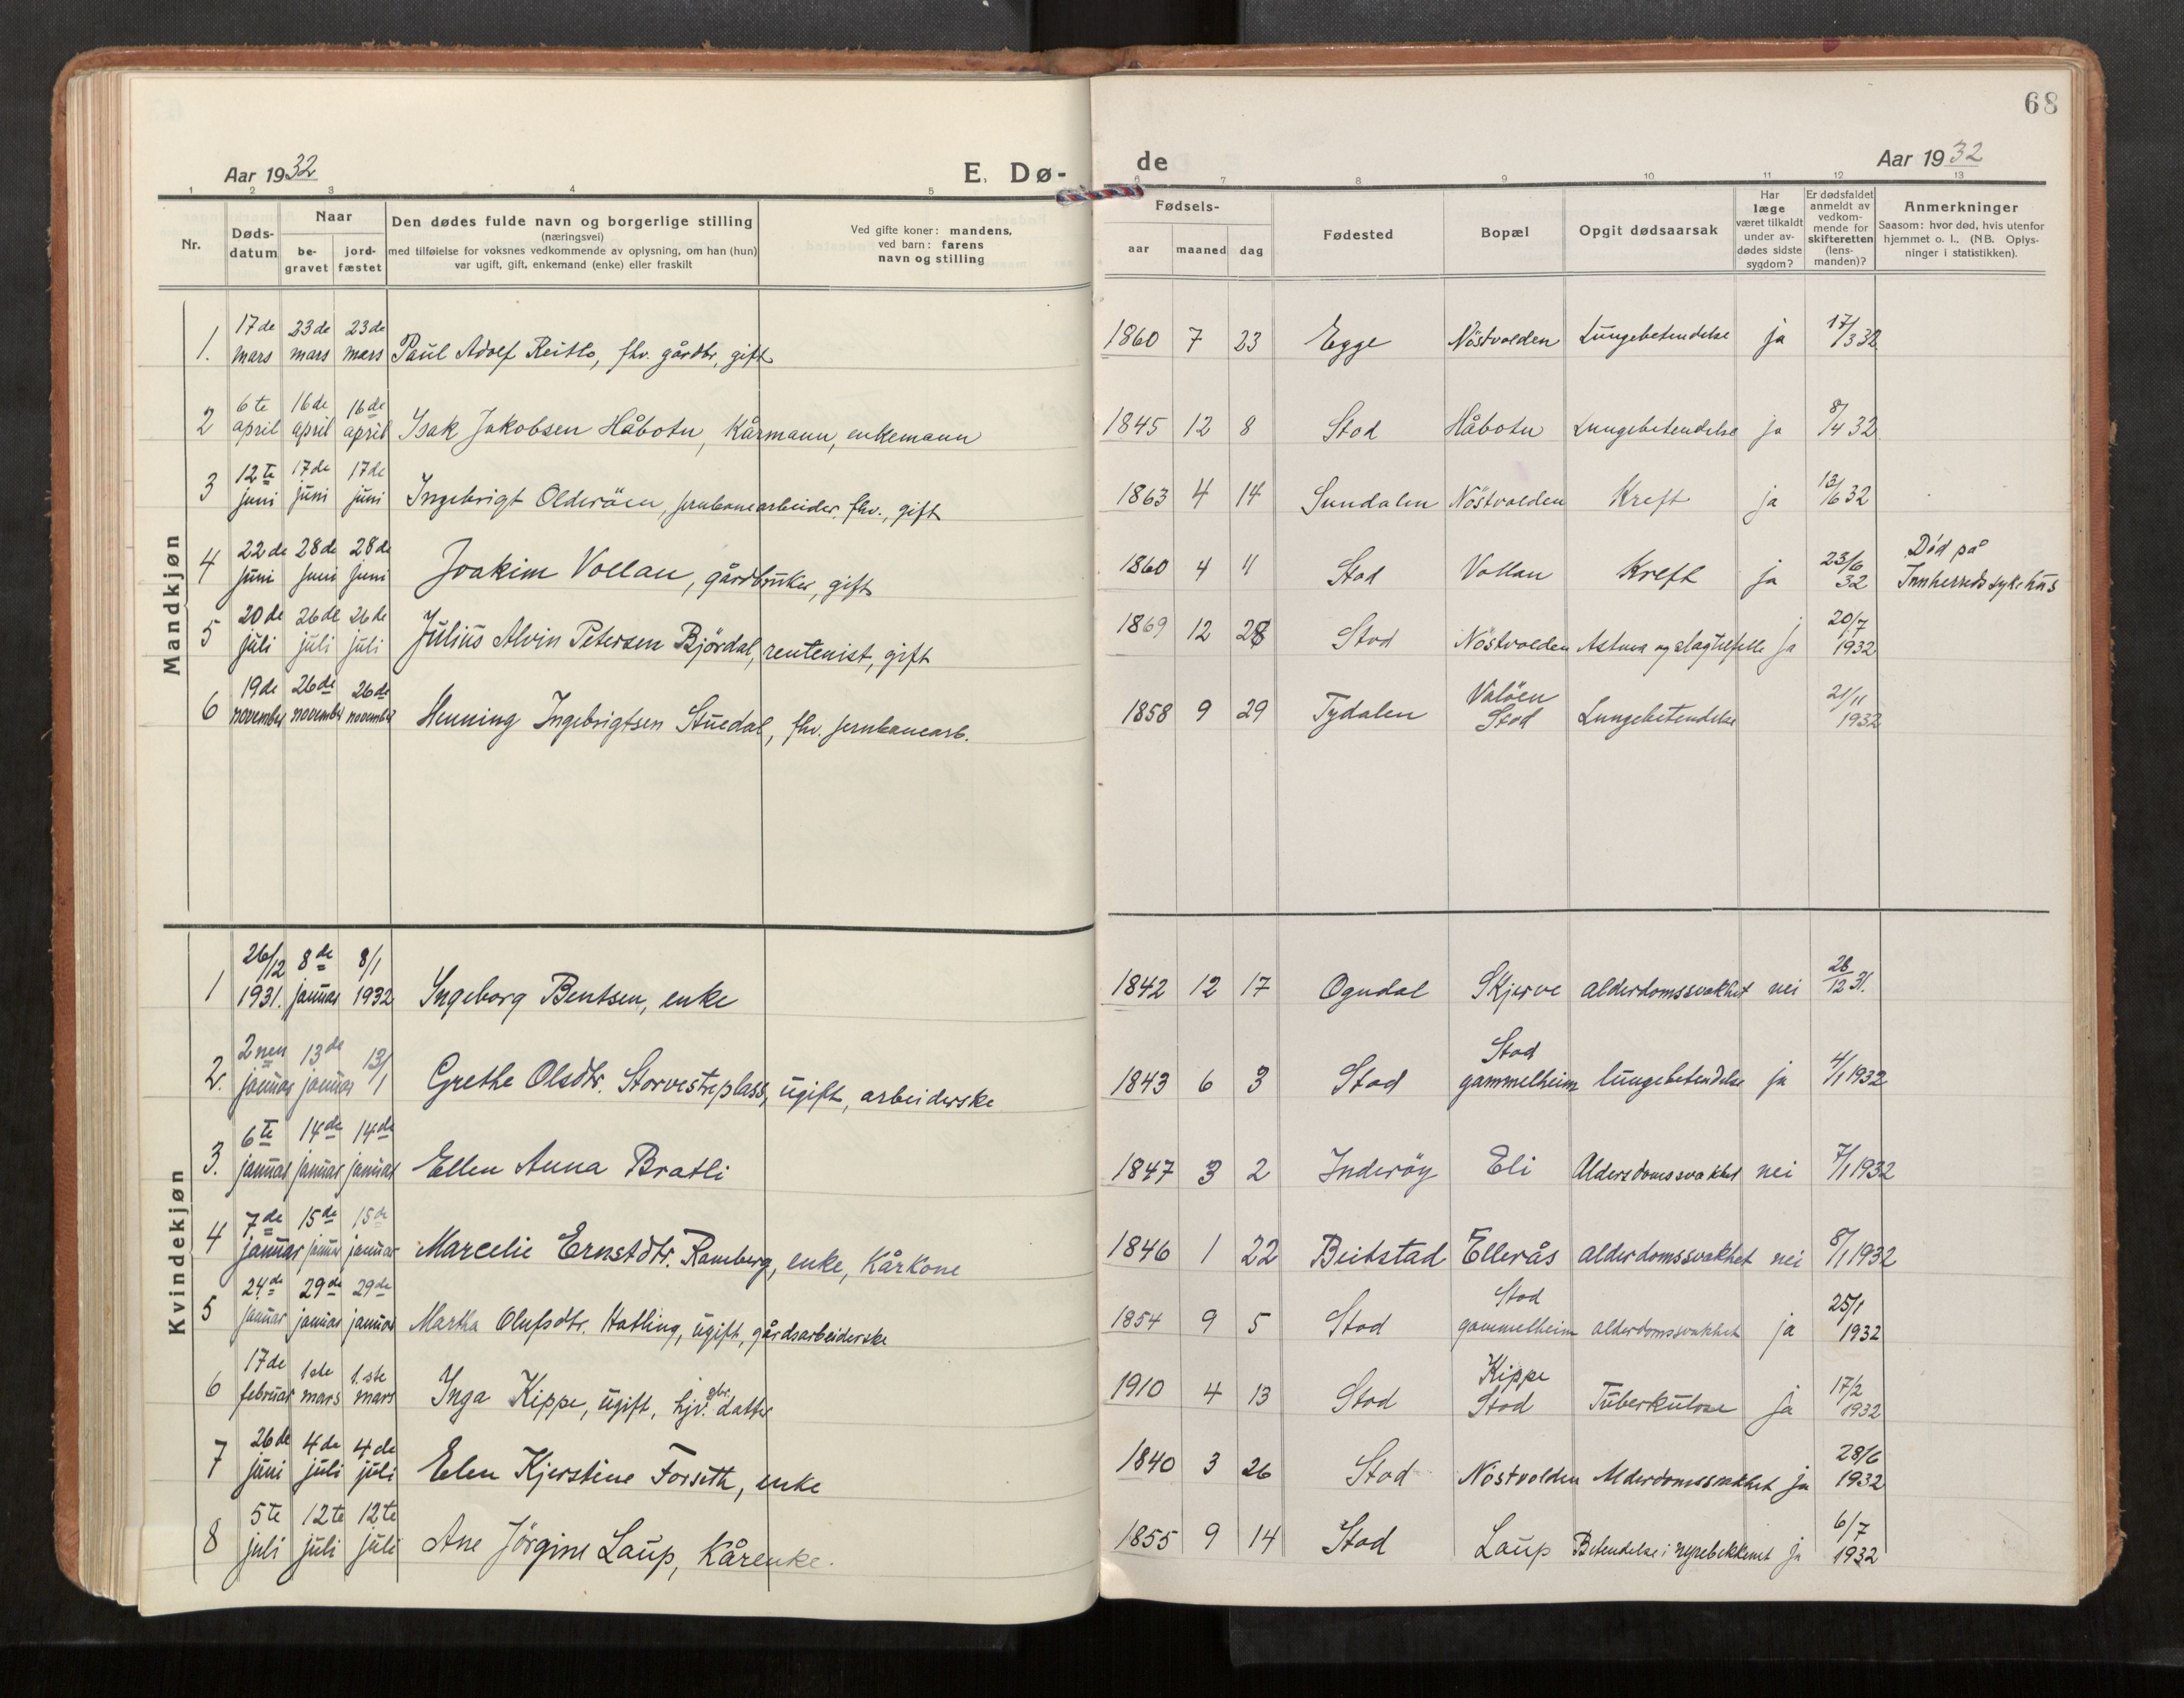 68
Aar 1932
E. Dø-
de
Aar 1932
1 2 3 4 5 6 7 8 9 10 11 12 13
Nr.
Døds-
datum
Naar
be-
gravet
jord-
fæstet
Den dødes fulde navn og borgerlige stilling
(næringsvei)
med tilføielse for voksnes vedkommende av oplysning, om han (hun)
var ugift, gift, enkemand (enke) eller fraskilt
Ved gifte koner: mandens,
ved barn: farens
navn og stilling
Fødsels-
aar
maaned
dag
Fødested
Bopæl
Opgit dødsaarsak
Har
læge
været tilkaldt
under av-
dødes sidste
sygdom?
Er dødsfaldet
anmeldt av
vedkom-
mende for
skifteretten
(lens-
manden)?
Anmerkninger
Saasom: hvor død, hvis utenfor
hjemmet o. l., (NB. Oplys-
ninger i statistikken).
Mandkjøn
17de 23de 23de
1. mars mars mars Paul Adolf Reitlo, fhv. gårdbr, gift 1860 7 23 Egge Nöstvolden Lungebetendelse ja 17/3 32
6te 16de 16de
2 april april april Isak Jakobsen Håbotn, Kårmann, enkemann 1845 12 8 Stod Håbotn Lungebetendelse ja 8/4 32
12te 17de 17de
3 juni juni juni Ingebrigt Olderöen, jernbanearbeider, fhv., gift 1863 4 14 Sundalen Nöstvolden Kreft ja 13/6 32
22de 28de 28de
4 juni juni juni Joakim Vollan, gårdbruker, gift 1860 4 11 Stod Vollan Kreft ja 23/6 32 Död på
Innherreds sykehus
20de 26de 26de
5 juli juli juli Julius Alvin Petersen Björdal, rentenist, gift 1869 12 28 Stod Nöstvolden Astma og slagtilfelle ja 20/7 1932
19de 26de 26de
6 november november november Henning Ingebrigtsen Stuedal, fhv. jernbanearb. 1858 9 29 Tydalen Valöen
Stod Lungebetendelse 21/11 1932
Kvindekjøn
26/12 8de 8/1
1 1931. januar 1932 Ingeborg Bentsen, enke 1842 12 17 Ogndal Skjerve alderdomssvakhet nei 28/12 31.
2nen 13de 13/1
2. januar januar Grethe Olsdtr. Storvestreplass, ugift, arbeiderske 1843 6 3 Stod Stod
gammelheim lungebetendelse ja 4/1 1932
6te 14de 14de
3. januar januar januar Ellen Anna Bratli 1847 3 2 Inderöy Eli Aldersdomssvakhet nei 7/1 1932
7de 15de 15de
4 januar januar januar Marcelie Ernstdtr. Ramberg, enke, Kårkone 1846 1 22 Beitstad Ellerås alderdomssvakhet nei 8/1 1932
24de 29de 29de
5 januar januar januar Martha Olufsdtr. Hatling, ugift, gårdsarbeiderske 1854 9 5 Stod Stod
gammelheim alderdomssvakhet ja 25/1 1932
17de 1ste 1.ste
6 februar mars mars Inga Kippe, ugift, hjv. gbr. datter 1910 4 13 Stod Kippe
Stod Tuberkulose ja 17/2 1932
26de 4de 4de
7 juni juli juli Elen Kjerstine Forseth, enke 1840 3 26 Stod Nöstvolden Alderdomssvakhet ja 28/6 1932
5te 12te 12te
8 juli juli juli Ane Jörgine Laup, Kårenke. 1855 9 14 Stod Laup Betendelse i nyrebekkenet ja 6/7 1932